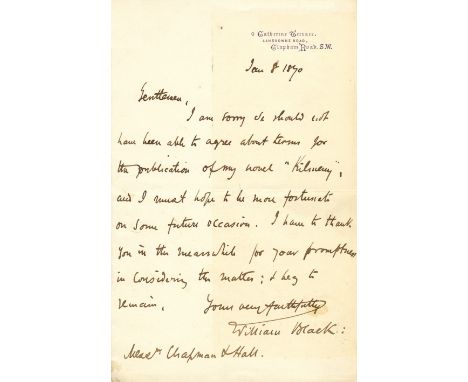 9 Catherine Terrace,
LANSDOWNE ROAD,
Clapham Road. S.W.
Jan 8 1870
Gentlemen,
I am sorry we should not
have been able to agree about terms for
the publication of my novel "Kilmeny",
and I must hope to be more fortunate
on some future occasion. I have to thank
you in the meanwhile for your promptness
in considering the matter; & beg to
remain, Yours very faithfully
William Black:
Messrs Chapman & Hall.